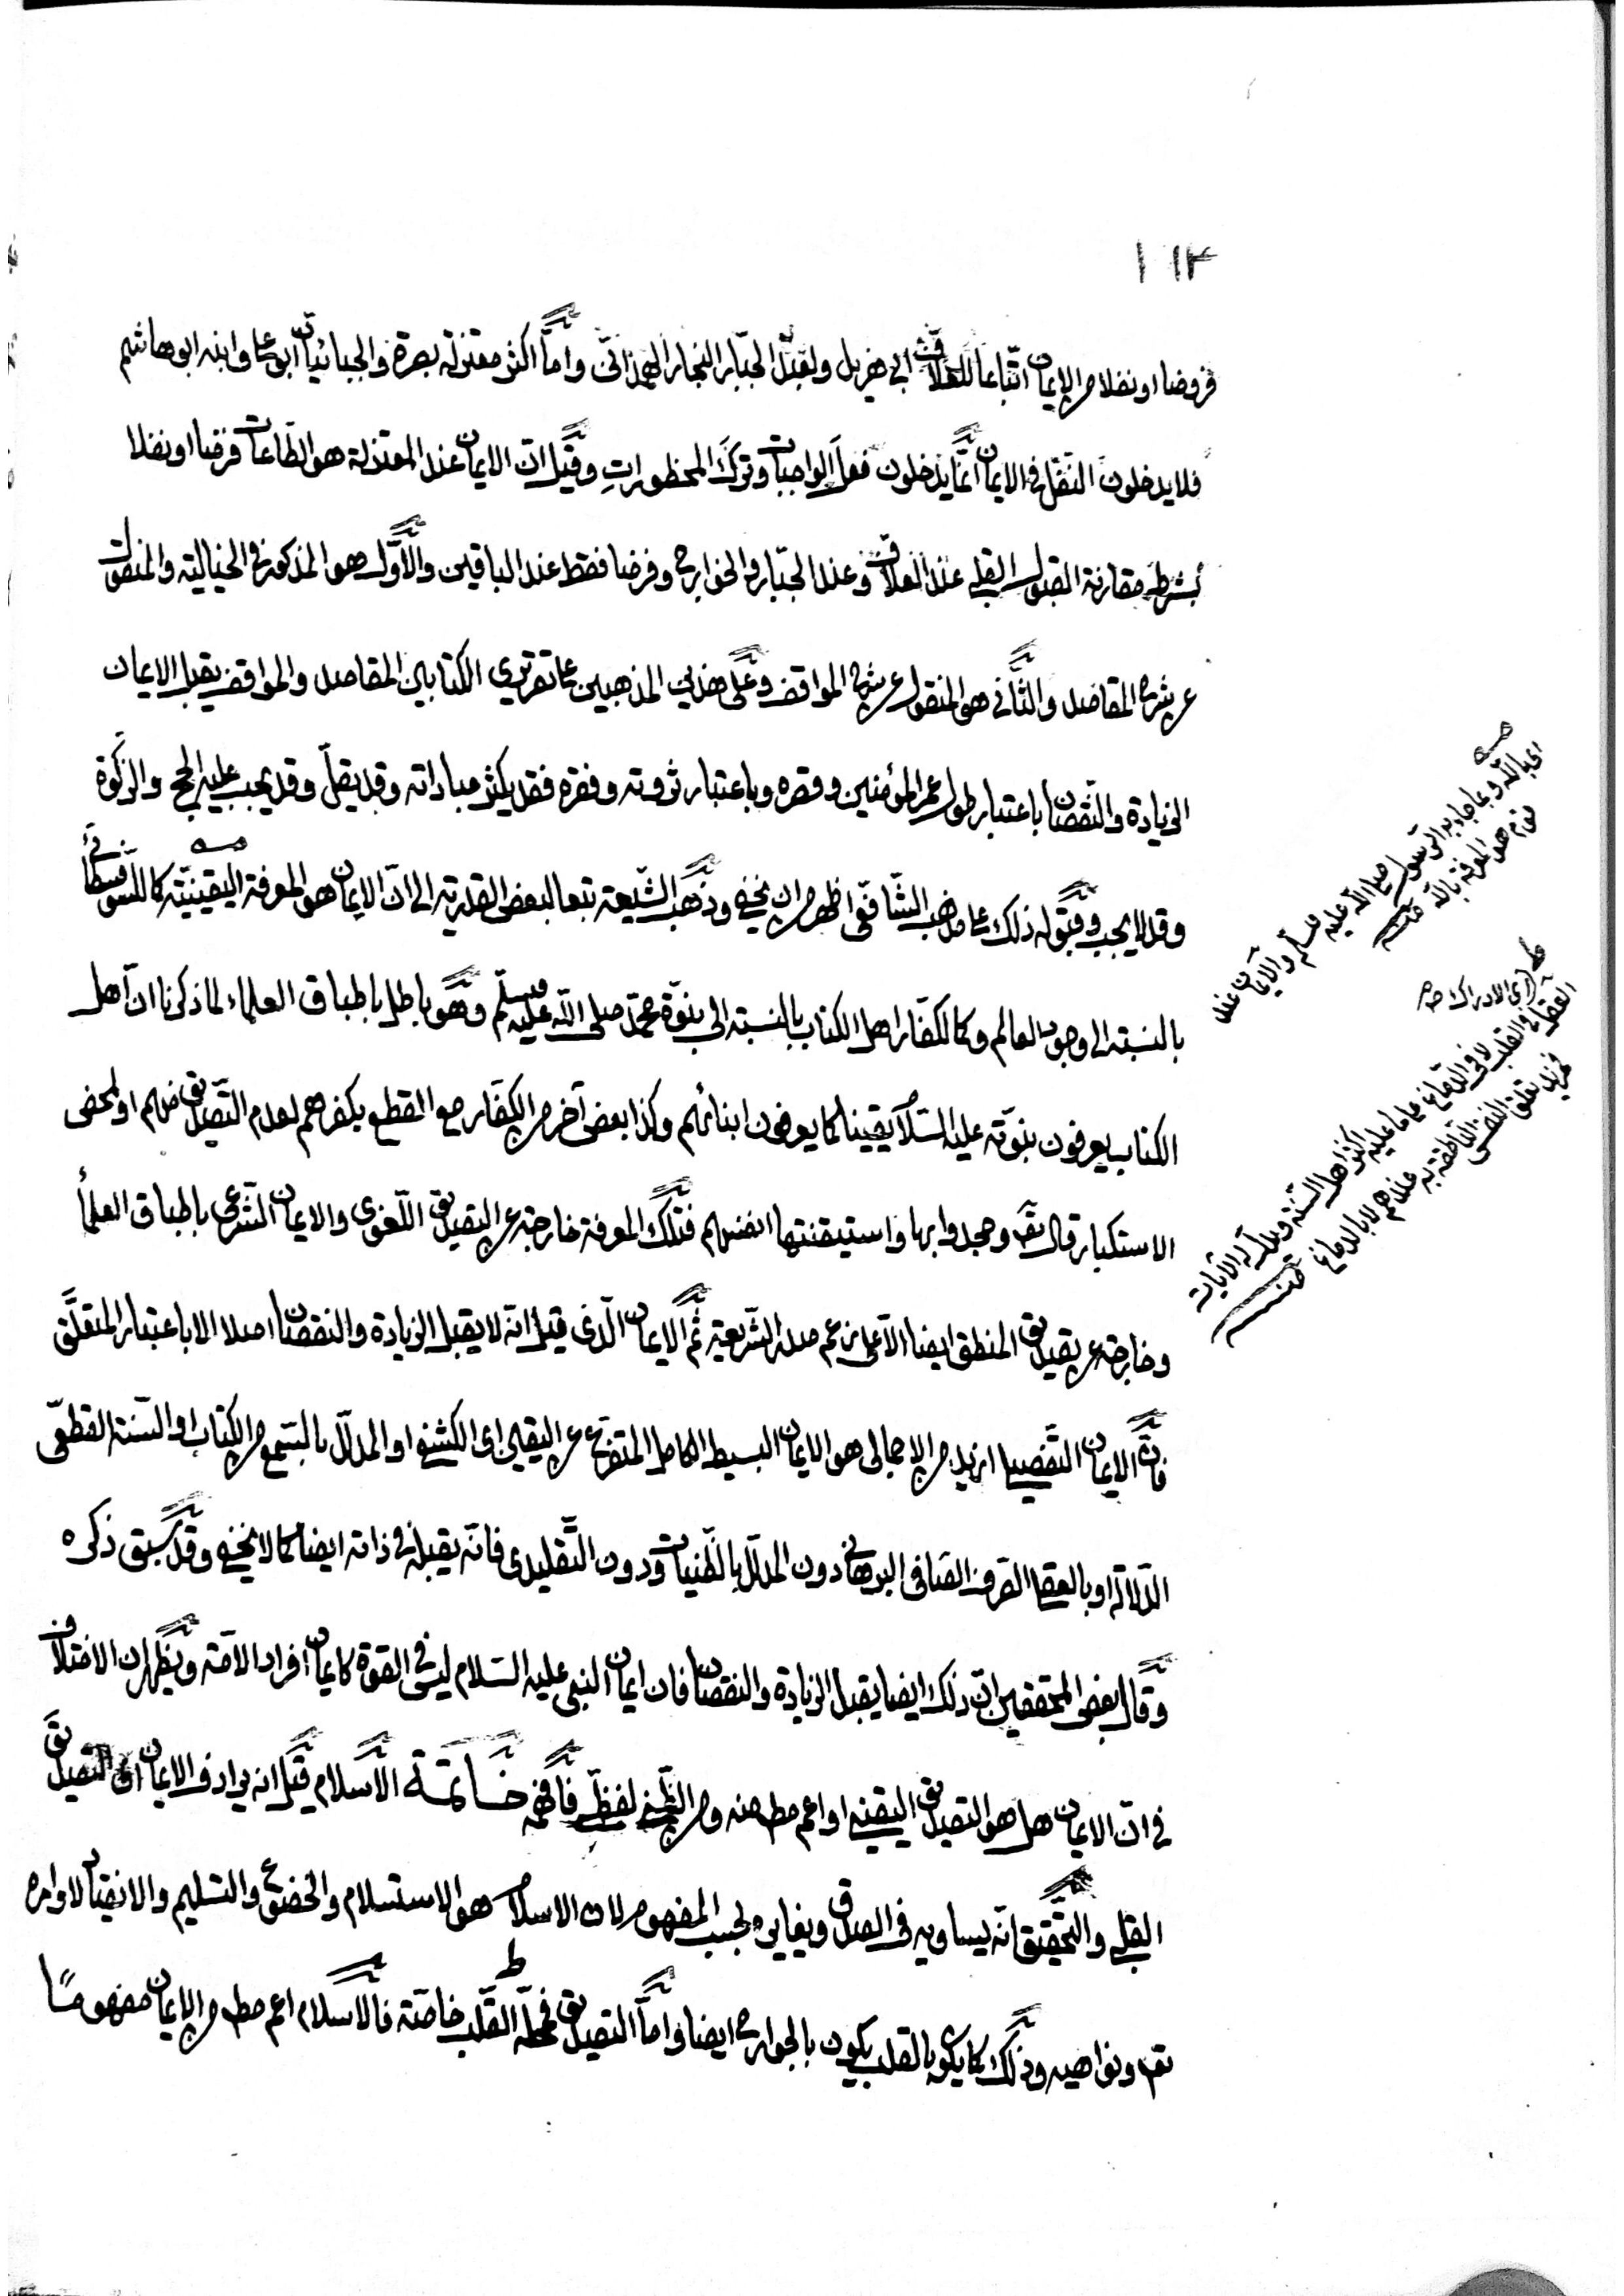 ١١٣
فروضا او نفلا من الإيمان اتّباعا للعلاّف ابي هذيل ولعبد الجبّار النجار الهمذانى وامّا اكثر معتزلة بصرة والجبائيان ابو على وابنه ابو هاشم
فلا يدخلون النّفل فى الايمان انّما يدخلون فعل الواجبات وترك المحظورات وقيل ان الايمان عند المعتزلة هو الطّاعات فرضا او نفلا
بشرط مقارنة القبول القلبى عند العلاّف وعند الجبّار والخوارج وفرضا فقط عند الباقين والأوّل هو المذكور فى الخيالية والمنقول
عن شرح المقاصد والثّانى هو المنقول عن شرح المواقف وعلى هذين المذهبين على تقريرى الكتابين المقاصد والمواقف يقبل الايمان
الزيادة والنّقصان باعتبار طول عمر المؤمنين وقصره وباعتبار ثروته وفقره فقد يكثر عباداته وقد يقلّ وقد يجب عليه الحج والزكوة
وقد لا يجب وقبوله ذلك على مذهب الشّافعى اظهر من ان يخفى وذهب الشّيعة تبعا لبعض القدرية الى انّ الايمان هو المعرفة اليقينيّة كالسّوفسطائى
بالنسبة الى وجود العالم وكالكفّار اهل الكتاب بالنسبة الى نبوّة محمّد صلى اللّه عليه وسلّم وهو باطل باطباق العلماء لما ذكرنا انّ اهل
الكتاب يعرفون نبوّته عليه السّلام يقينا كما يعرفون ابنائهم وكذا بعض آخر من الكفّار مع القطع بكفرهم لعدم التّصديق منهم او لمحض
الاستكبار قال تعالى وجحدوا بها واستيقنتها انفسهم فتلك المعرفة خارجة عن التصديق اللّغوى والايمان الشّرعى باطباق العلمأ
وخارجة عن تصديق المنطق ايضا الاّ على زعم صدر الشّريعة ثمّ الايمان الّذى قيل انه لا يقبل الزيادة والنقصان اصلا الا باعتبار المتعلَّق
فانّ الايمان التّفصيلى ازيد من الإجمالى هو الايمان البسيط الكامل المتفرّع عن اليقين اى الكشفى او المدلّل بالسّمع من الكتاب او السّنة القطعى
الدّلالة او بالعقل الصرف الصافى البرهانى دون المدلّل بالظّنيات ودون التّقليدى فانّه يقبله فى ذاته ايضا كما لا يخفى وقد سبق ذكره
وقال بعض المحققين ان ذلك ايضا يقبل الزيادة والنقصان فان ايمان النبى عليه السّلام ليس فى القوة كايمان افراد الامّة ويظهر ان الاختلاف
فى انّ الايمان هل هو التصديق اليقينى او اعم منه ومن الظّنى لفظى فافهم خاتمة الاسلام قيل انه يرادف الايمان اى التصديق
القلبى والتّحقيق انّه يساويه فى الصدق ويغايره بحسب المفهوم لان الاسلام هو الاستسلام والخضوع والتسليم والانقياد لاوامره
تعالى ونواهيه وذلك كما يكون بالقلب يكون بالجوارح ايضا وامّا التصديق فمحلّه القلب خاصّة فالاسلام اعم من الإيمان مفهومًا
اى باللّه وبما جاء به الرّسول صلى اللّه عليه وسلّم والايمان عند
قوم هو المعرفة باللّه منه
اى الادراك
العقلى فى القلب لا فى الدّماغ على ما عليه اكثر اهل السّنة ويدلّ له الآيات
تعلق النفس النّاطقة به عندهم لا بالدماغ منه